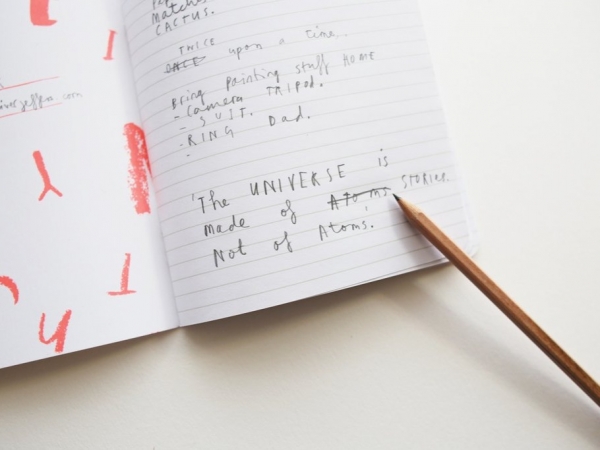 Matches
CACTUS.
TWICE
ONCE upon a time..
Bring Painting stuff HOME
- Camera TRIPOD.
- SUIT.
- RING Dad.
-
'The UNIVERSE is
made of Atoms STORIES
Not of Atoms.'